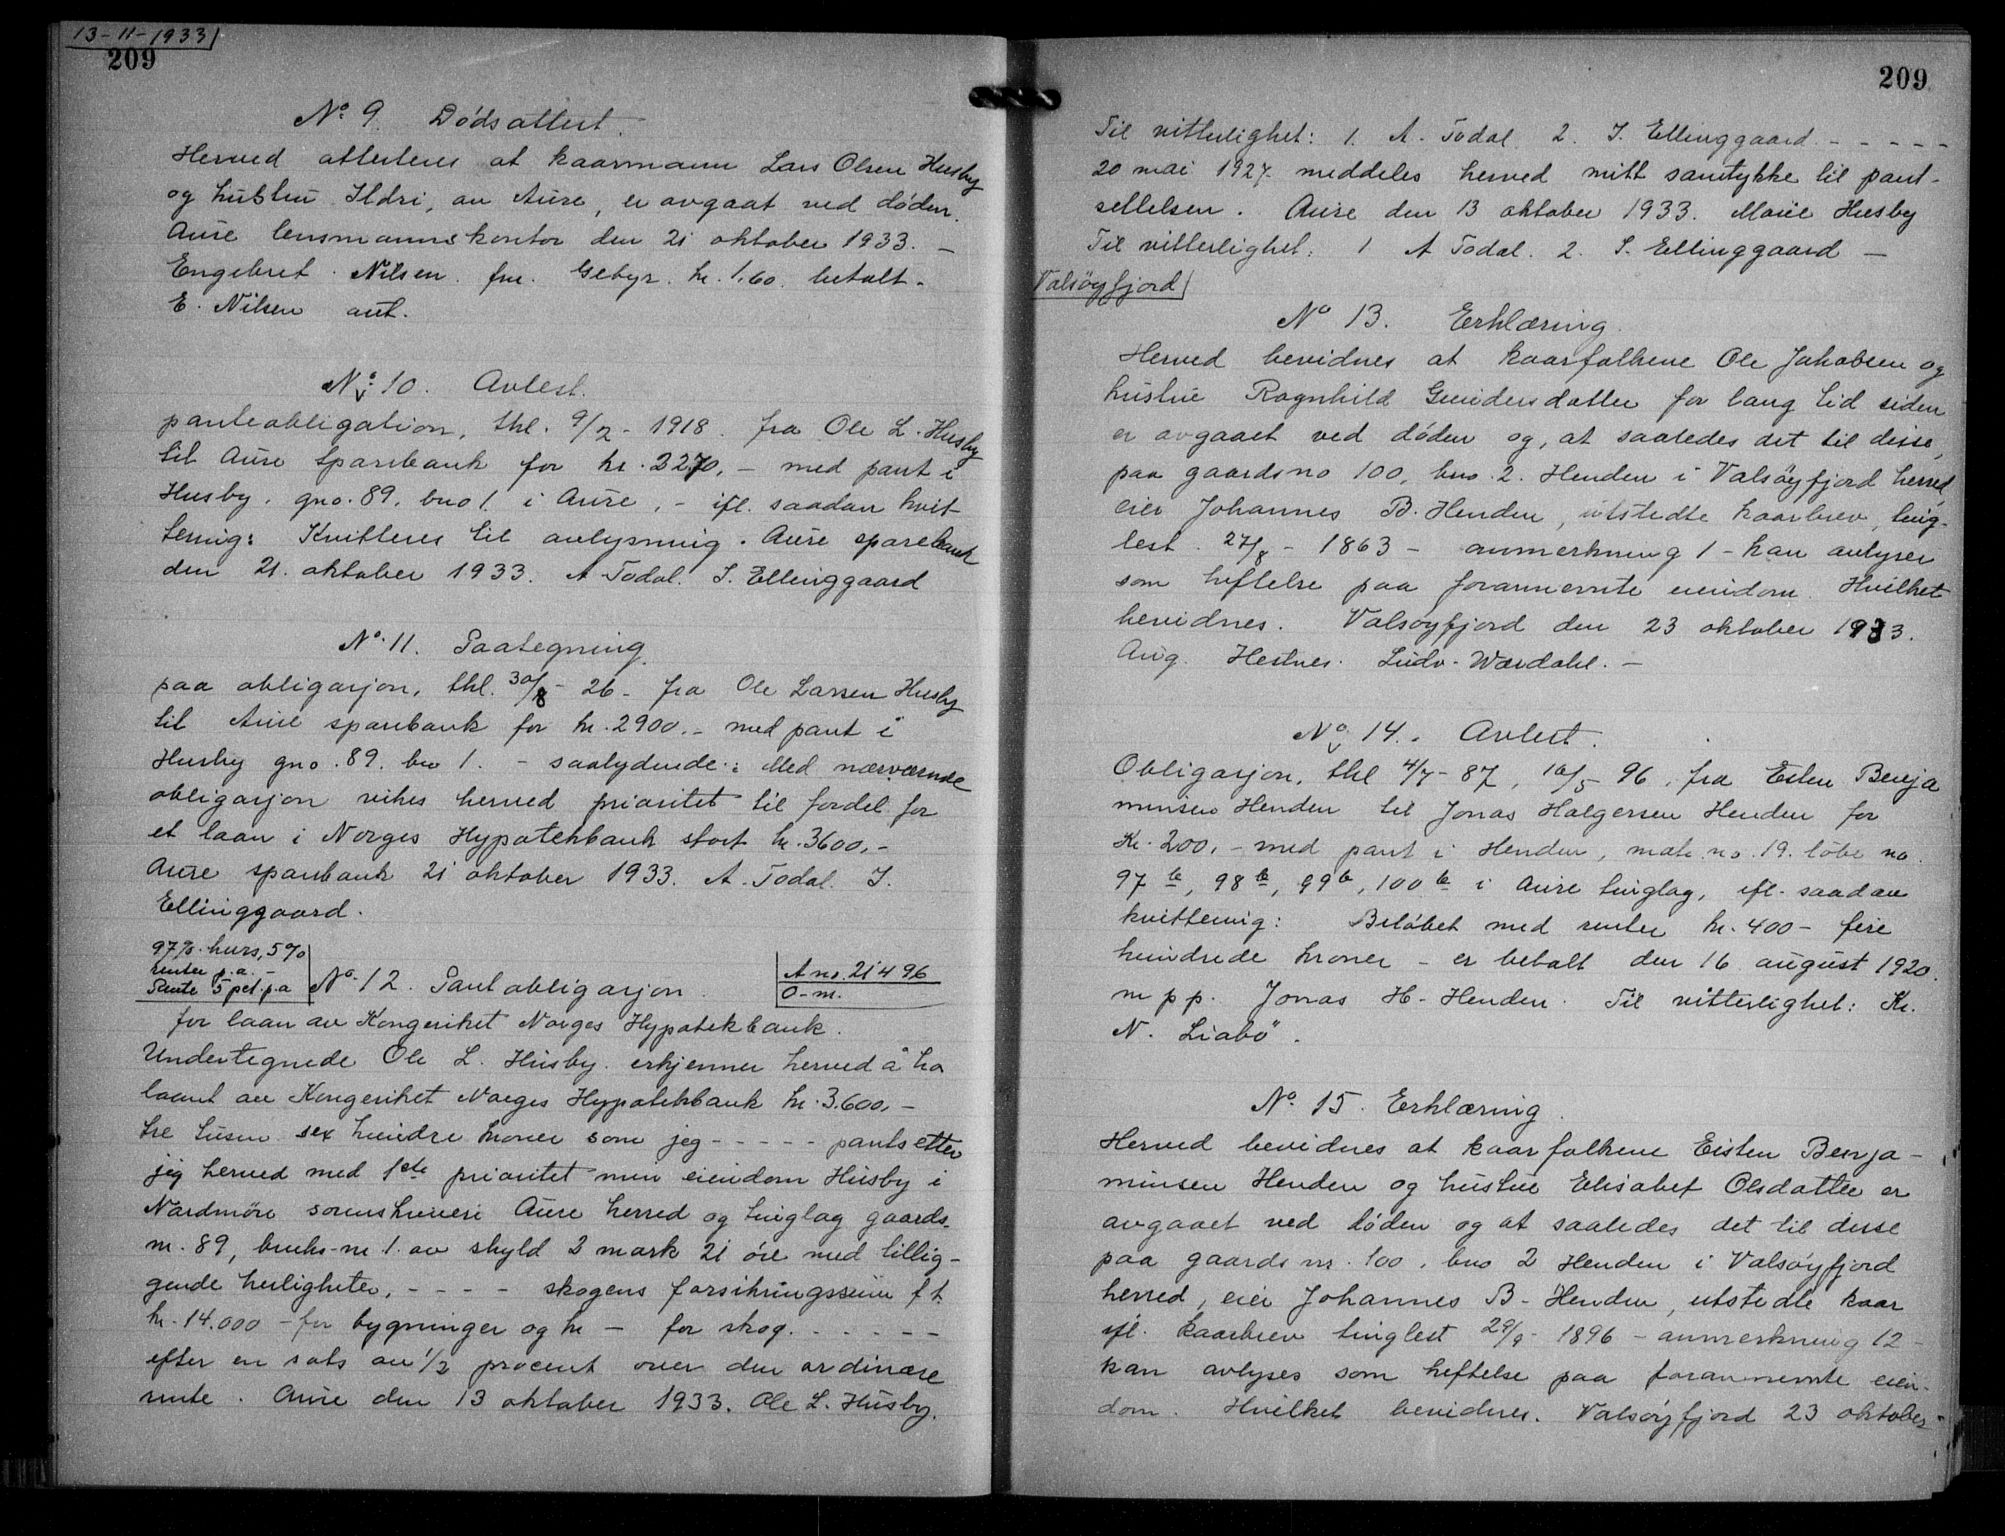 13-11-1933
209
No 9. Dødsattest.
Herved attesteres at kaarmann Lars Olsen Husby
og hustru Ildri, av Aure, er avgaat ved døden.
Aure lensmannskontor den 21 oktober 1933. –
Engebret Nilsen fm. Gebyr. kr. 1.60. betalt.
E. Nilsen aut.
No 10. Avlest.
panteobligation, thl. 9/2 - 1918. fra Ole L. Husby
til Aure Sparebank for kr. 2270,- med pant i
Husby. gno. 89. bno 1. i Aure, - ifl. saadan kvit
tering: Kvitteres til avlysning. Aure sparebank
den 21. oktober 1933. A. Todal. I. Ellinggaard
No. 11. Paategning
paa obligasjon, thl. 30/8 - 26 - fra Ole Larsen Husby
til Aure sparebank for kr. 2900.- med pant i
Husby gno. 89. bno 1. - saalydende: Med nærværende
obligasjon vikes herved prioritet til fordel for
et laan i Norges Hypotekbank stort kr. 3600,-
Aure sparebank 21 oktober 1933. A. Todal. I.
Ellinggaard.
97% kurs, 5%
renter p.a. -
Rente 5 pct. p.a
No. 12. Pantobligasjon.
A no. 21496
O-m.
for laan av Kongeriket Norges Hypotekbank.
Undertegnede Ole L. Husby. erkjenner herved å ha
laant av Kongeriket Norges Hypotekbank kr. 3.600,-
tre tusen sex hundre kroner som jeg - - - - - pantsetter
jeg herved med 1ste prioritet min eiendom Husby i
Nordmøre sorenskriveri Aure herred og tinglag gaards-
nr. 89, bruks-nr 1. av skyld 2 mark 21 øre med tillig-
gende herligheter, - - - - skogens forsikringssum f.t.
kr. 14.000 - for bygninger og kr - for skog. - - - - -
efter en sats av 1/2 procent over den ordinære
rente. Aure den 13 oktober 1933. Ole L. Husby.
209
Til vitterlighet: 1. A. Todal. 2. I. Ellinggaard. - - - - -
20 mai 1927 meddeles herved mitt samtykke til pant-
settelsen. Aure den 13 oktober 1933. Marie Husby
Til vitterlighet: 1 A Todal. 2. I. Ellinggaard –
Valsøyfjord
No 13. Erklæring.
Herved bevidnes at kaarfolkene Ole Jakobsen og
hustru Ragnhild Gundersdatter for lang tid siden
er avgaaet ved døden og, at saaledes det til disse,
paa gaardsno 100, bno. 2. Henden i Valsøyfjord herred,
eier Johannes B. Henden, utstedte kaarbrev, ting-
lest. 27/8 - 1863 - anmerkning 1 - kan avlyses
som heftelse paa forannevnte eiendom. Hvilket
bevidnes. Valsøyfjord den 23 oktober 1933.
Aug. Hestnes. Ludv. Wærdahl. –
No 14. Avlest.
Obligasjon, thl 4/7 - 87, 16/5 96, fra Esten Benja
minsen Henden til Jonas Halgersen Henden for
Kr. 200,- med pant i Henden, matr. no. 19. løbe no.
97 b, 98 b, 99 b, 100 b i Aure tinglag, ifl. saadan
kvittering: Beløbet med renter kr. 400 - fire
hundrede kroner - er betalt den 16 august 1920.
m p p. Jonas H. Henden. Til vitterlighet: Kr.
N. Liabø.
No. 15. Erklæring.
Herved bevidnes at kaarfolkene Eisten Benja-
minsen Henden og hustru Elisabet Olsdatter er
avgaaet ved døden og at saaledes det til disse
paa gaards nr. 100, bno 2 Henden i Valsøyfjord
herred, eier Johannes B. Henden, utstedte kaar
ifl. kaarbrev tinglest 29/9 - 1896 - anmerkning 12 -
kan avlyses som heftelse paa forannevnte eien-
dom. Hvilket bevidnes. Valsøyfjord 23 oktober